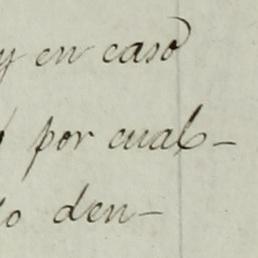 y en caso
por cual-
den-